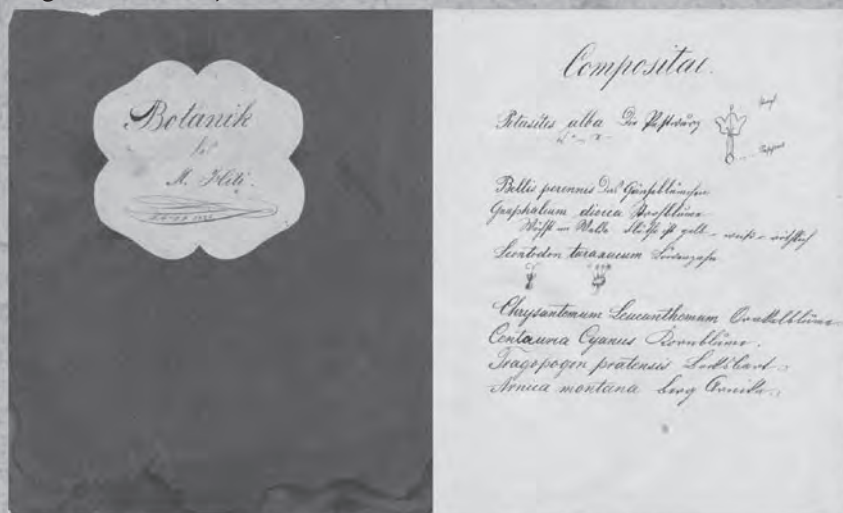 Botanik
M. Hiti.
Compositae.
Petasites alba Die Pestwurz
Bellis perennis Das Gänseblümchen
Gnaphalium dioica Strohblume
Wächst im Walde Blüthe ist gelb - weiß - röthlich
Leontodon taraxacum Löwenzahn
Chrysantemum Leucanthemum Orakelblume
Centauna Cyanus Kornblume.
Tragopogon pratensis Bocksbart
Arnica montana Berg Arnika
Pappus